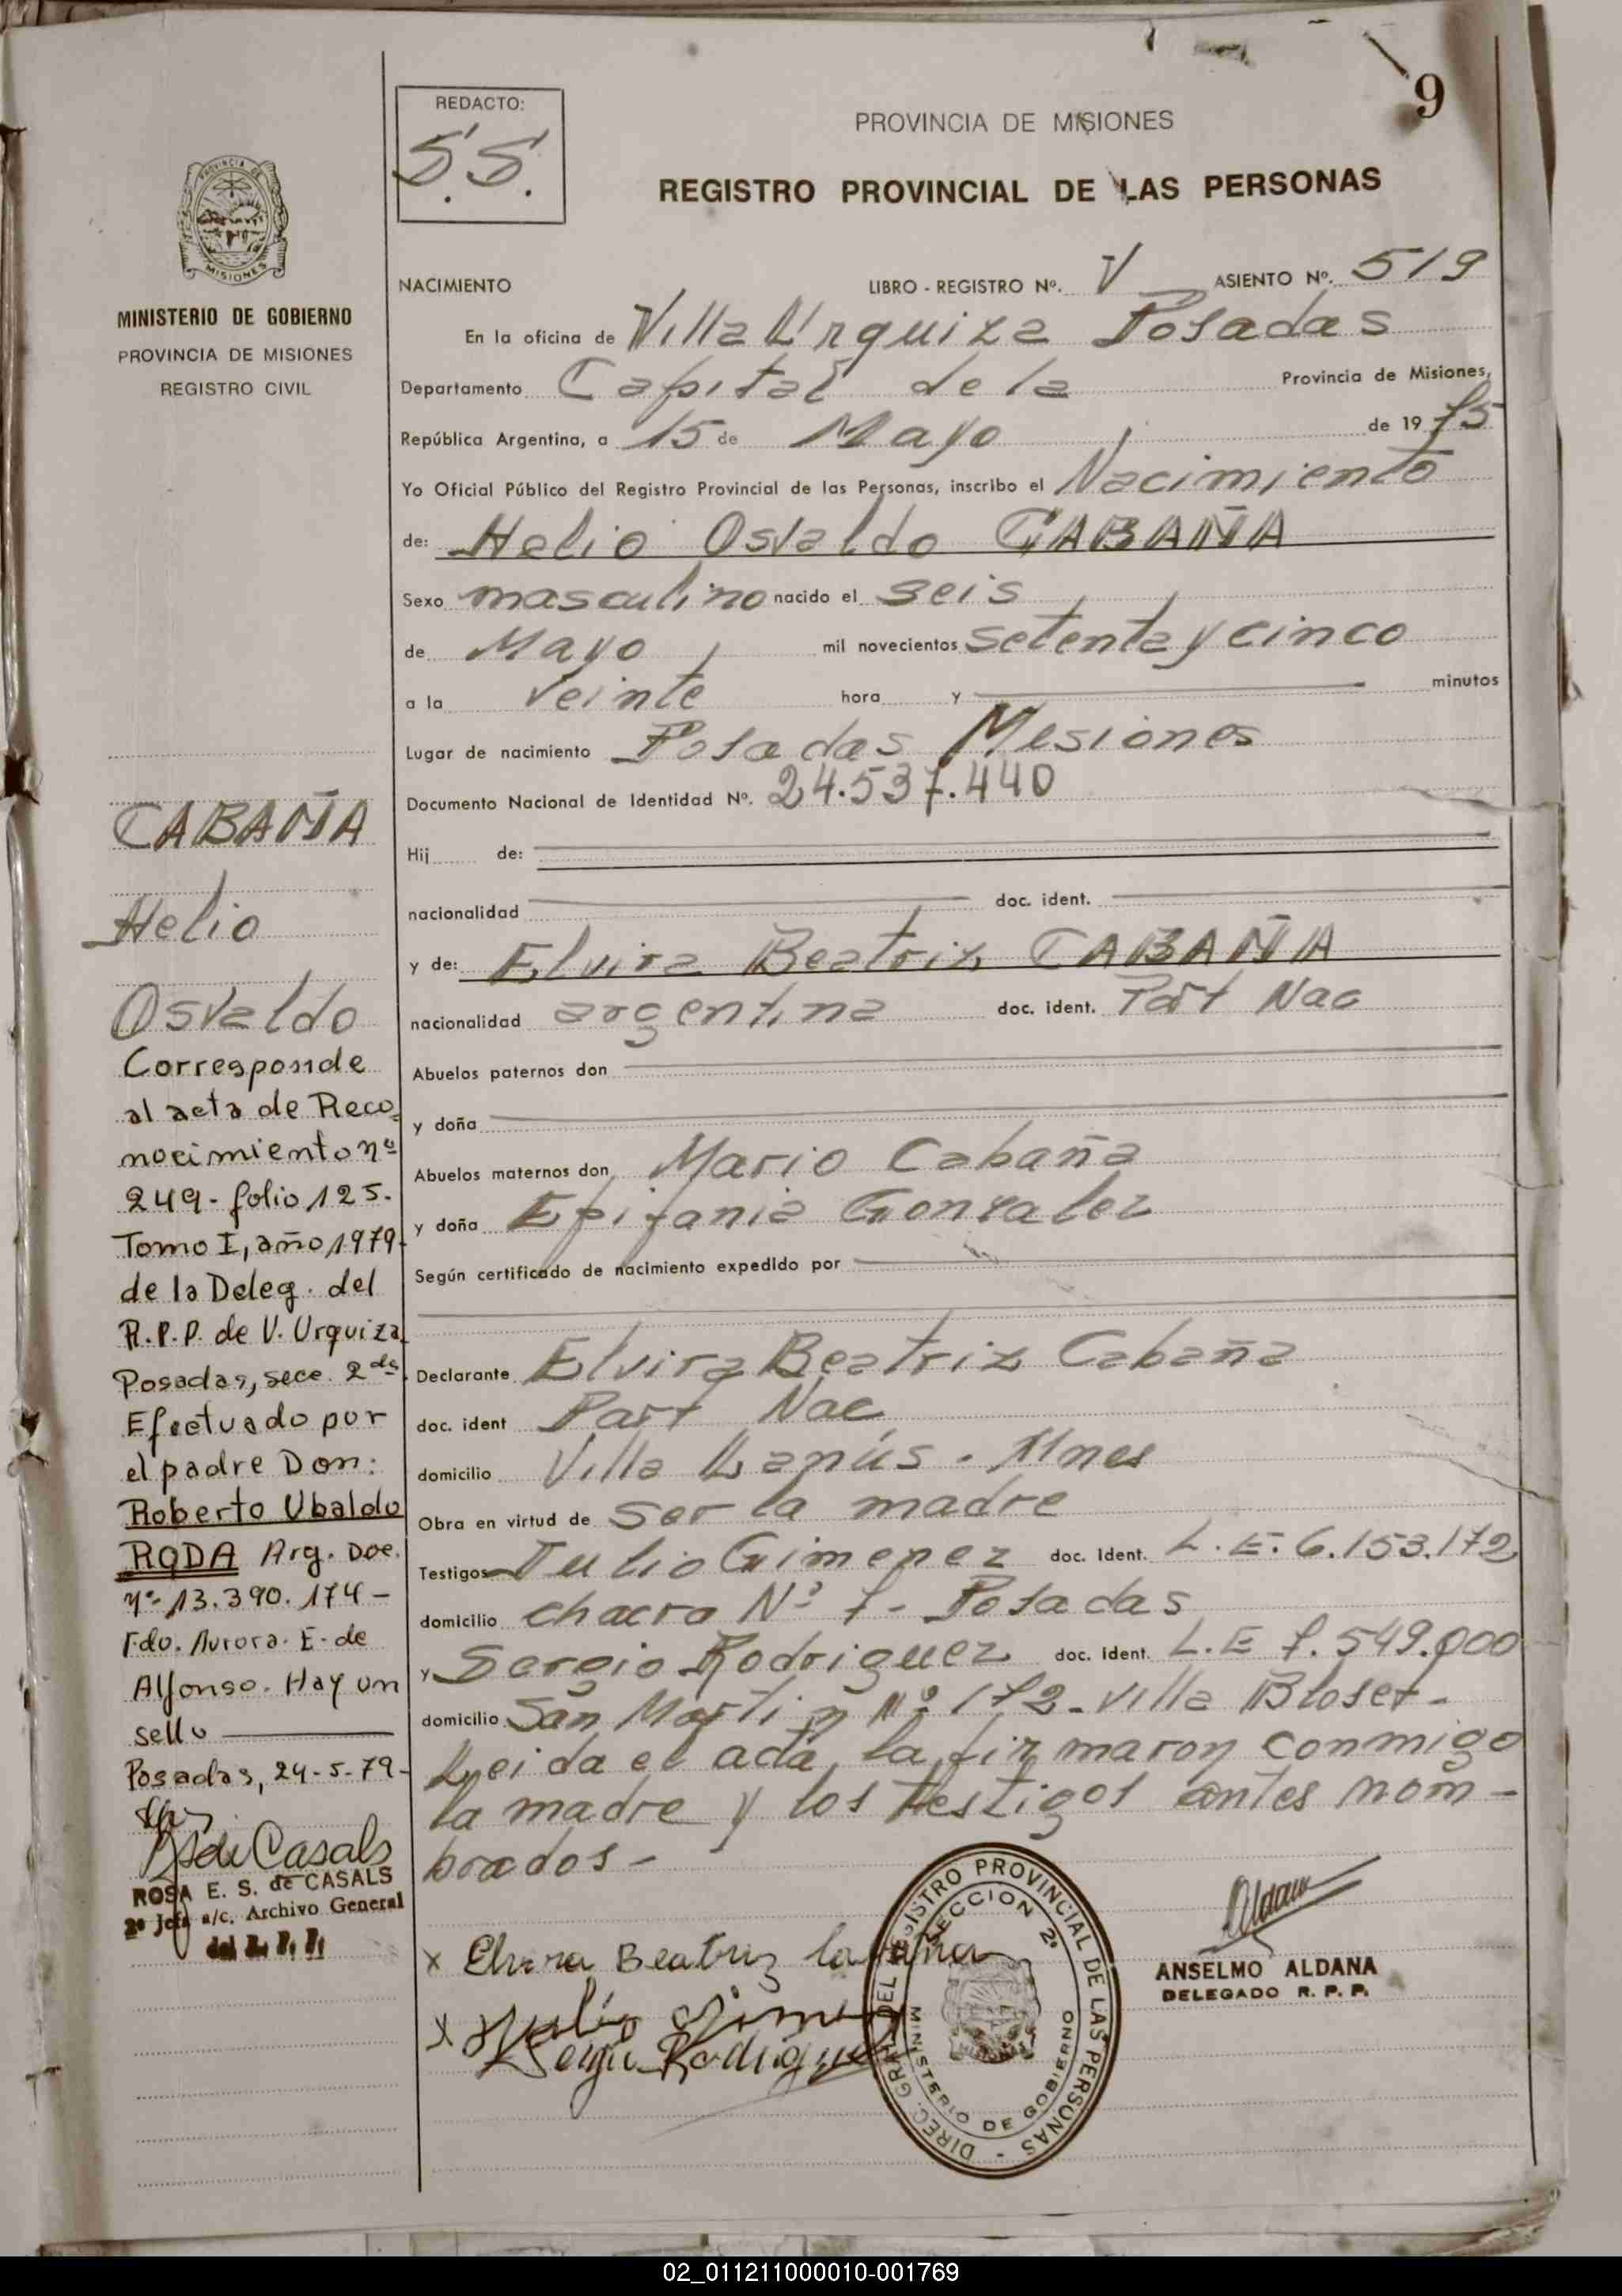 9
REDACTO:
S.S.
PROVINCIA DE MISIONES
REGISTRO PROVINCIAL DE LAS PERSONAS
PROVINCIA DE
MISIONES
MINISTERIO DE GOBIERNO
PROVINCIA DE MISIONES
REGISTRO CIVIL
NACIMIENTO LIBRO - REGISTRO Nº. V ASIENTO Nº. 519
En la oficina de Villa Urquiza Posadas
Departamento Capital de la Provincia de Misiones,
República Argentina, a 15 de Mayo de 19 75
Yo Oficial Público del Registro Provincial de las Personas, inscribo el Nacimiento
de: Helio Osvaldo CABAÑA
Sexo masculino nacido el seis
de Mayo mil novecientos setenta y cinco
a la veinte hora y minutos
Lugar de nacimiento Posadas Mesiones
Documento Nacional de Identidad Nº. 24.537.440
Hij de:
nacionalidad doc. ident.
y de: Elvira Beatriz CABAÑA
nacionalidad argentina doc. ident. Part Nac
Abuelos paternos don
y doña
Abuelos maternos don Mario Cabaña
y doña Epifania Gonzalez
Según certificado de nacimiento expedido por
Declarante Elvira Beatriz Cabaña
doc. ident Part Nac
domicilio Villa Lanús - Mnes
Obra en virtud de ser la madre
Testigos Julio Gimenez doc. Ident. L.E. 6.153.172
domicilio chacra Nº 7 - Posadas
y Sergio Rodriguez doc. Ident. L.E 7.549.000
domicilio San Martin Nº 172 - villa Bloset -
Leida el acta, la firmaron conmigo
la madre y los testigos antes nom -
brados -
CABAÑA
Helio
Osvaldo
Corresponde
al acta de Reco=
nocimiento nº
249 - folio 125.
Tomo I, año 1979-
de la Deleg. del
R.P.P. de V. Urquiza
Posadas, secc. 2da.
Efectuado por
el padre Don:
Roberto Ubaldo
RODA Arg. Doc.
nº 13.390.174 -
Fdo. Aurora. E. de
Alfonso. Hay un
sello
Posadas, 24-5-79-
de Casals
ROSA E. S. de CASALS
2º Jefe a/c. Archivo General
del R. P. P.
x Elvira Beatriz Cabaña
x Julio Gimenez
Sergio Rodriguez
DIREC. GRAL. DEL REGISTRO PROVINCIAL DE LAS PERSONAS -
SECCION 2ª
MINISTERIO DE GOBIERNO
MISIONES
Aldana
ANSELMO ALDANA
DELEGADO R. P. P.
02_011211000010-001769